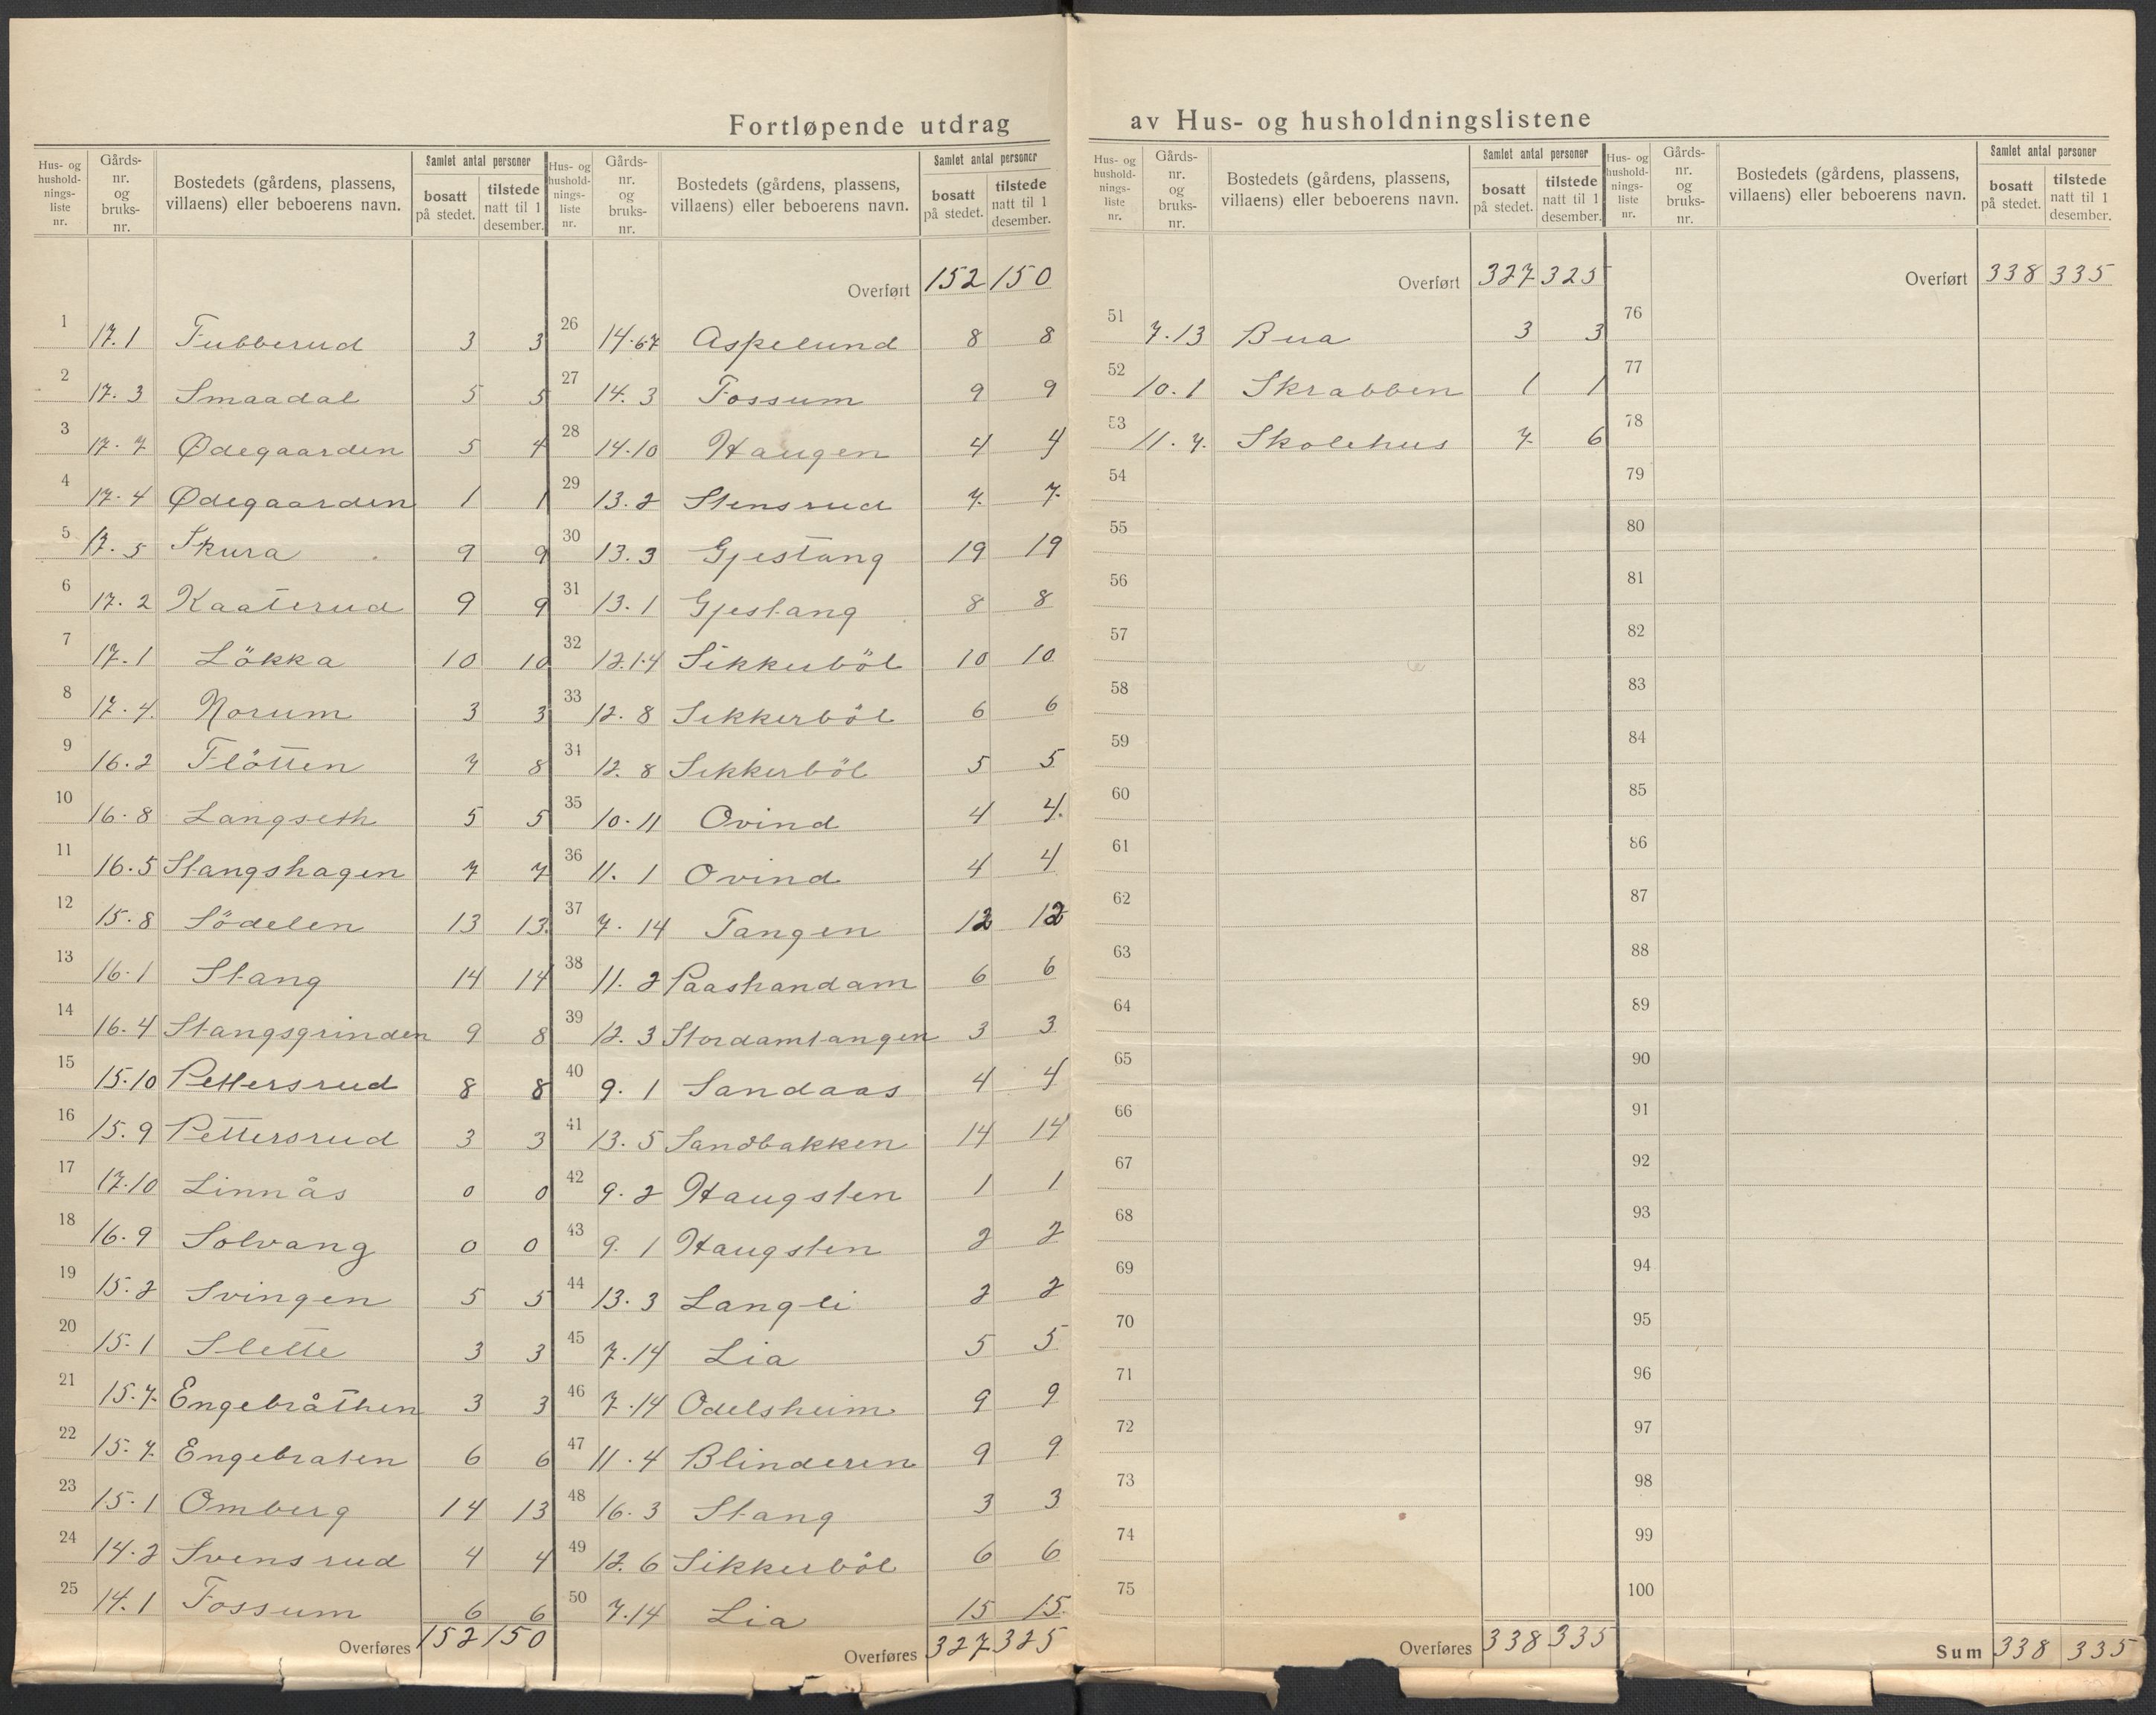 Fortløpende utdrag av Hus- og husholdningslistene
Hus- og hushold-nings-liste nr. Gårds-nr. og bruks-nr. Bostedets (gårdens, plassens, villaens) eller beboerens navn. Samlet antal personer bosatt på stedet. tilstede natt til 1 desember.
1 17.1 Tubberud 3 3
2 17.3 Smaadal 5 5
3 17.7 Ødegaarden 5 4
4 17.4 Ødegaarden 1 1
5 17.5 Skura 9 9
6 17.2 Kaaterud 9 9
7 17.1 Lökka 10 10
8 17.4 Norum 3 3
9 16.2 Flötten 7 8
10 16.8 Langseth 5 5
11 16.5 Stangshagen 7 7
12 15.8 Södelen 13 13
13 16.1 Stang 14 14
14 16.4 Stangsgrinden 9 8
15 15.10 Pettersrud 8 8
16 15.9 Pettersrud 3 3
17 17.10 Linnås 0 0
18 16.9 Solvang 0 0
19 15.2 Svingen 5 5
20 15.1 Slette 3 3
21 15.7 Engebråthen 3 3
22 15.7 Engebraten 6 6
23 15.1 Omberg 14 13
24 14.2 Svensrud 4 4
25 14.1 Fossum 6 6
Overføres 152 150
Hus- og hushold-nings-liste nr. Gårds-nr. og bruks-nr. Bostedets (gårdens, plassens, villaens) eller beboerens navn. Samlet antal personer bosatt på stedet. tilstede natt til 1 desember.
Overført 152 150
26 14.67 Aspelund 8 8
27 14.3 Fossum 9 9
28 14.10 Haugen 4 4
29 13.2 Stensrud 7 7
30 13.3 Gjestang 19 19
31 13.1 Gjestang 8 8
32 12.1.4 Sikkerböl 10 10
33 12.8 Sikkerböl 6 6
34 12.8 Sikkerböl 5 5
35 10.11 Ovind 4 4
36 11.1 Ovind 4 4
37 7.14 Tangen 12 12
38 11.2 Paashandam 6 6
39 12.3 Stordamtangen 3 3
40 9.1 Sandaas 4 4
41 13.5 Sandbakken 14 14
42 9.2 Haugsten 1 1
43 9.1 Haugsten 2 2
44 13.3 Langli 2 2
45 7.14 Lia 5 5
46 7.14 Odelsheim 9 9
47 11.4 Blinderen 9 9
48 16.3 Stang 3 3
49 12.6 Sikkerböl 6 6
50 7.14 Lia 15 15
Overføres 327 325
Hus- og hushold-nings-liste nr. Gårds-nr. og bruks-nr. Bostedets (gårdens, plassens, villaens) eller beboerens navn. Samlet antal personer bosatt på stedet. tilstede natt til 1 desember.
Overført 327 325
51 7.13 Bua 3 3
52 10.1 Skrabben 1 1
53 11.7 Skolehus 7 6
54
55
56
57
58
59
60
61
62
63
64
65
66
67
68
69
70
71
72
73
74
75
Overføres 338 335
Hus- og hushold-nings-liste nr. Gårds-nr. og bruks-nr. Bostedets (gårdens, plassens, villaens) eller beboerens navn. Samlet antal personer bosatt på stedet. tilstede natt til 1 desember.
Overført 338 335
76
77
78
79
80
81
82
83
84
85
86
87
88
89
90
91
92
93
94
95
96
97
98
99
100
Sum 338 335